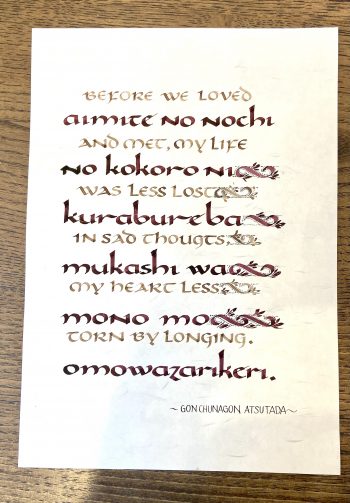 BEFORE WE LOVED
aimite no nochi
AND MET, MY LIFE
no kokoro ni
WAS LESS LOST
kurabureba
IN SAD THOUGTS,
mukashi wa
MY HEART LESS
mono mo
TORN BY LONGING.
omowazarikeri.
~ GON CHUNAGON ATSUTADA ~